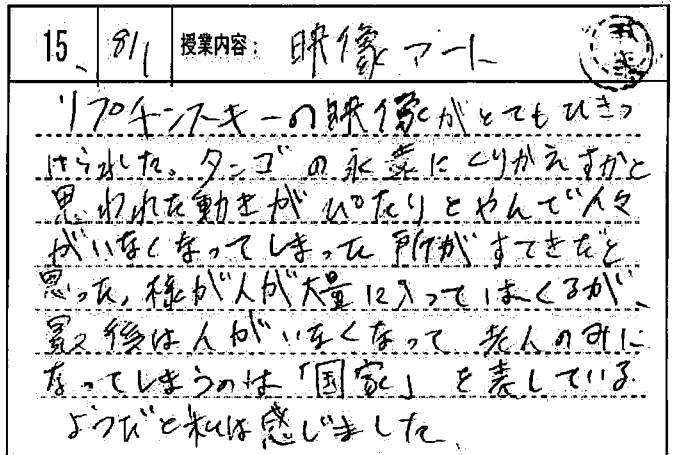 15、 8/1 授業内容： 映像アート
リプチンスキーの映像がとてもひきつ
けられた。タンゴの永遠にくりかえすかと
思われた動きがぴたりとやんで人々
がいなくなってしまった所がすてきだと
思った。様が人が大量に入ってはくるが、
最後は人がいなくなって老人のみに
なってしまうのは「国家」を表している
ようだと私は感じました。